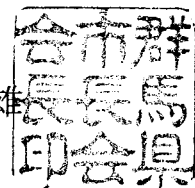 群馬県
市長会
会長印
准